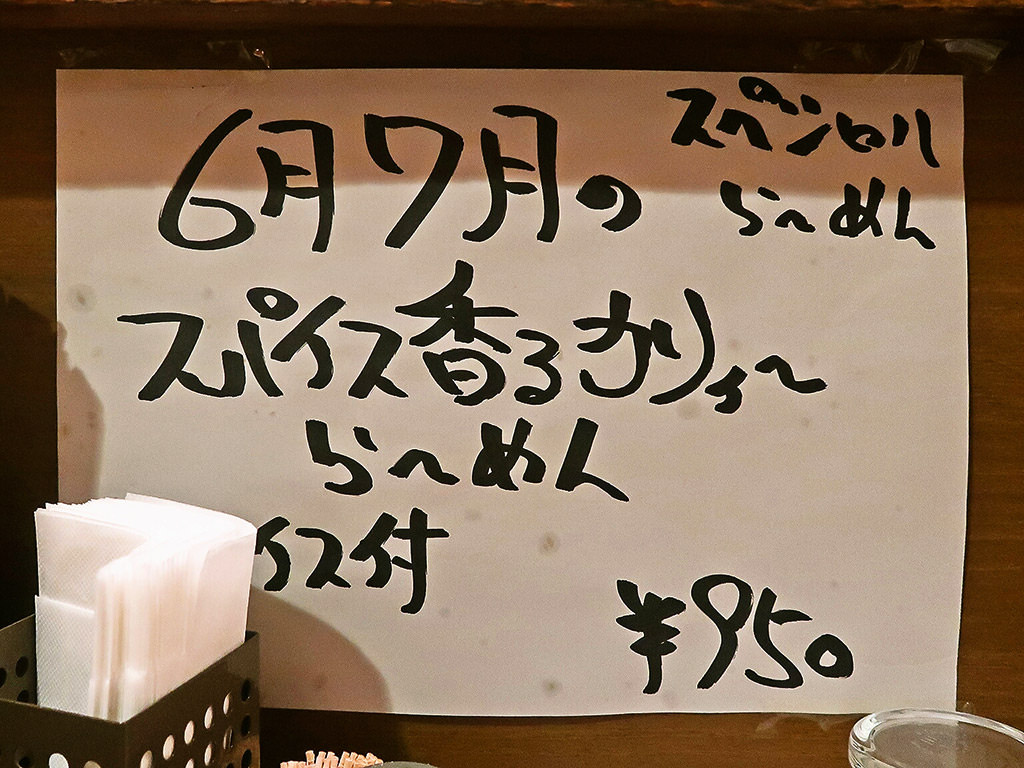 6月7月の
スペシャル
らーめん
スパイス香るカリィー
らーめん
イス付
¥950